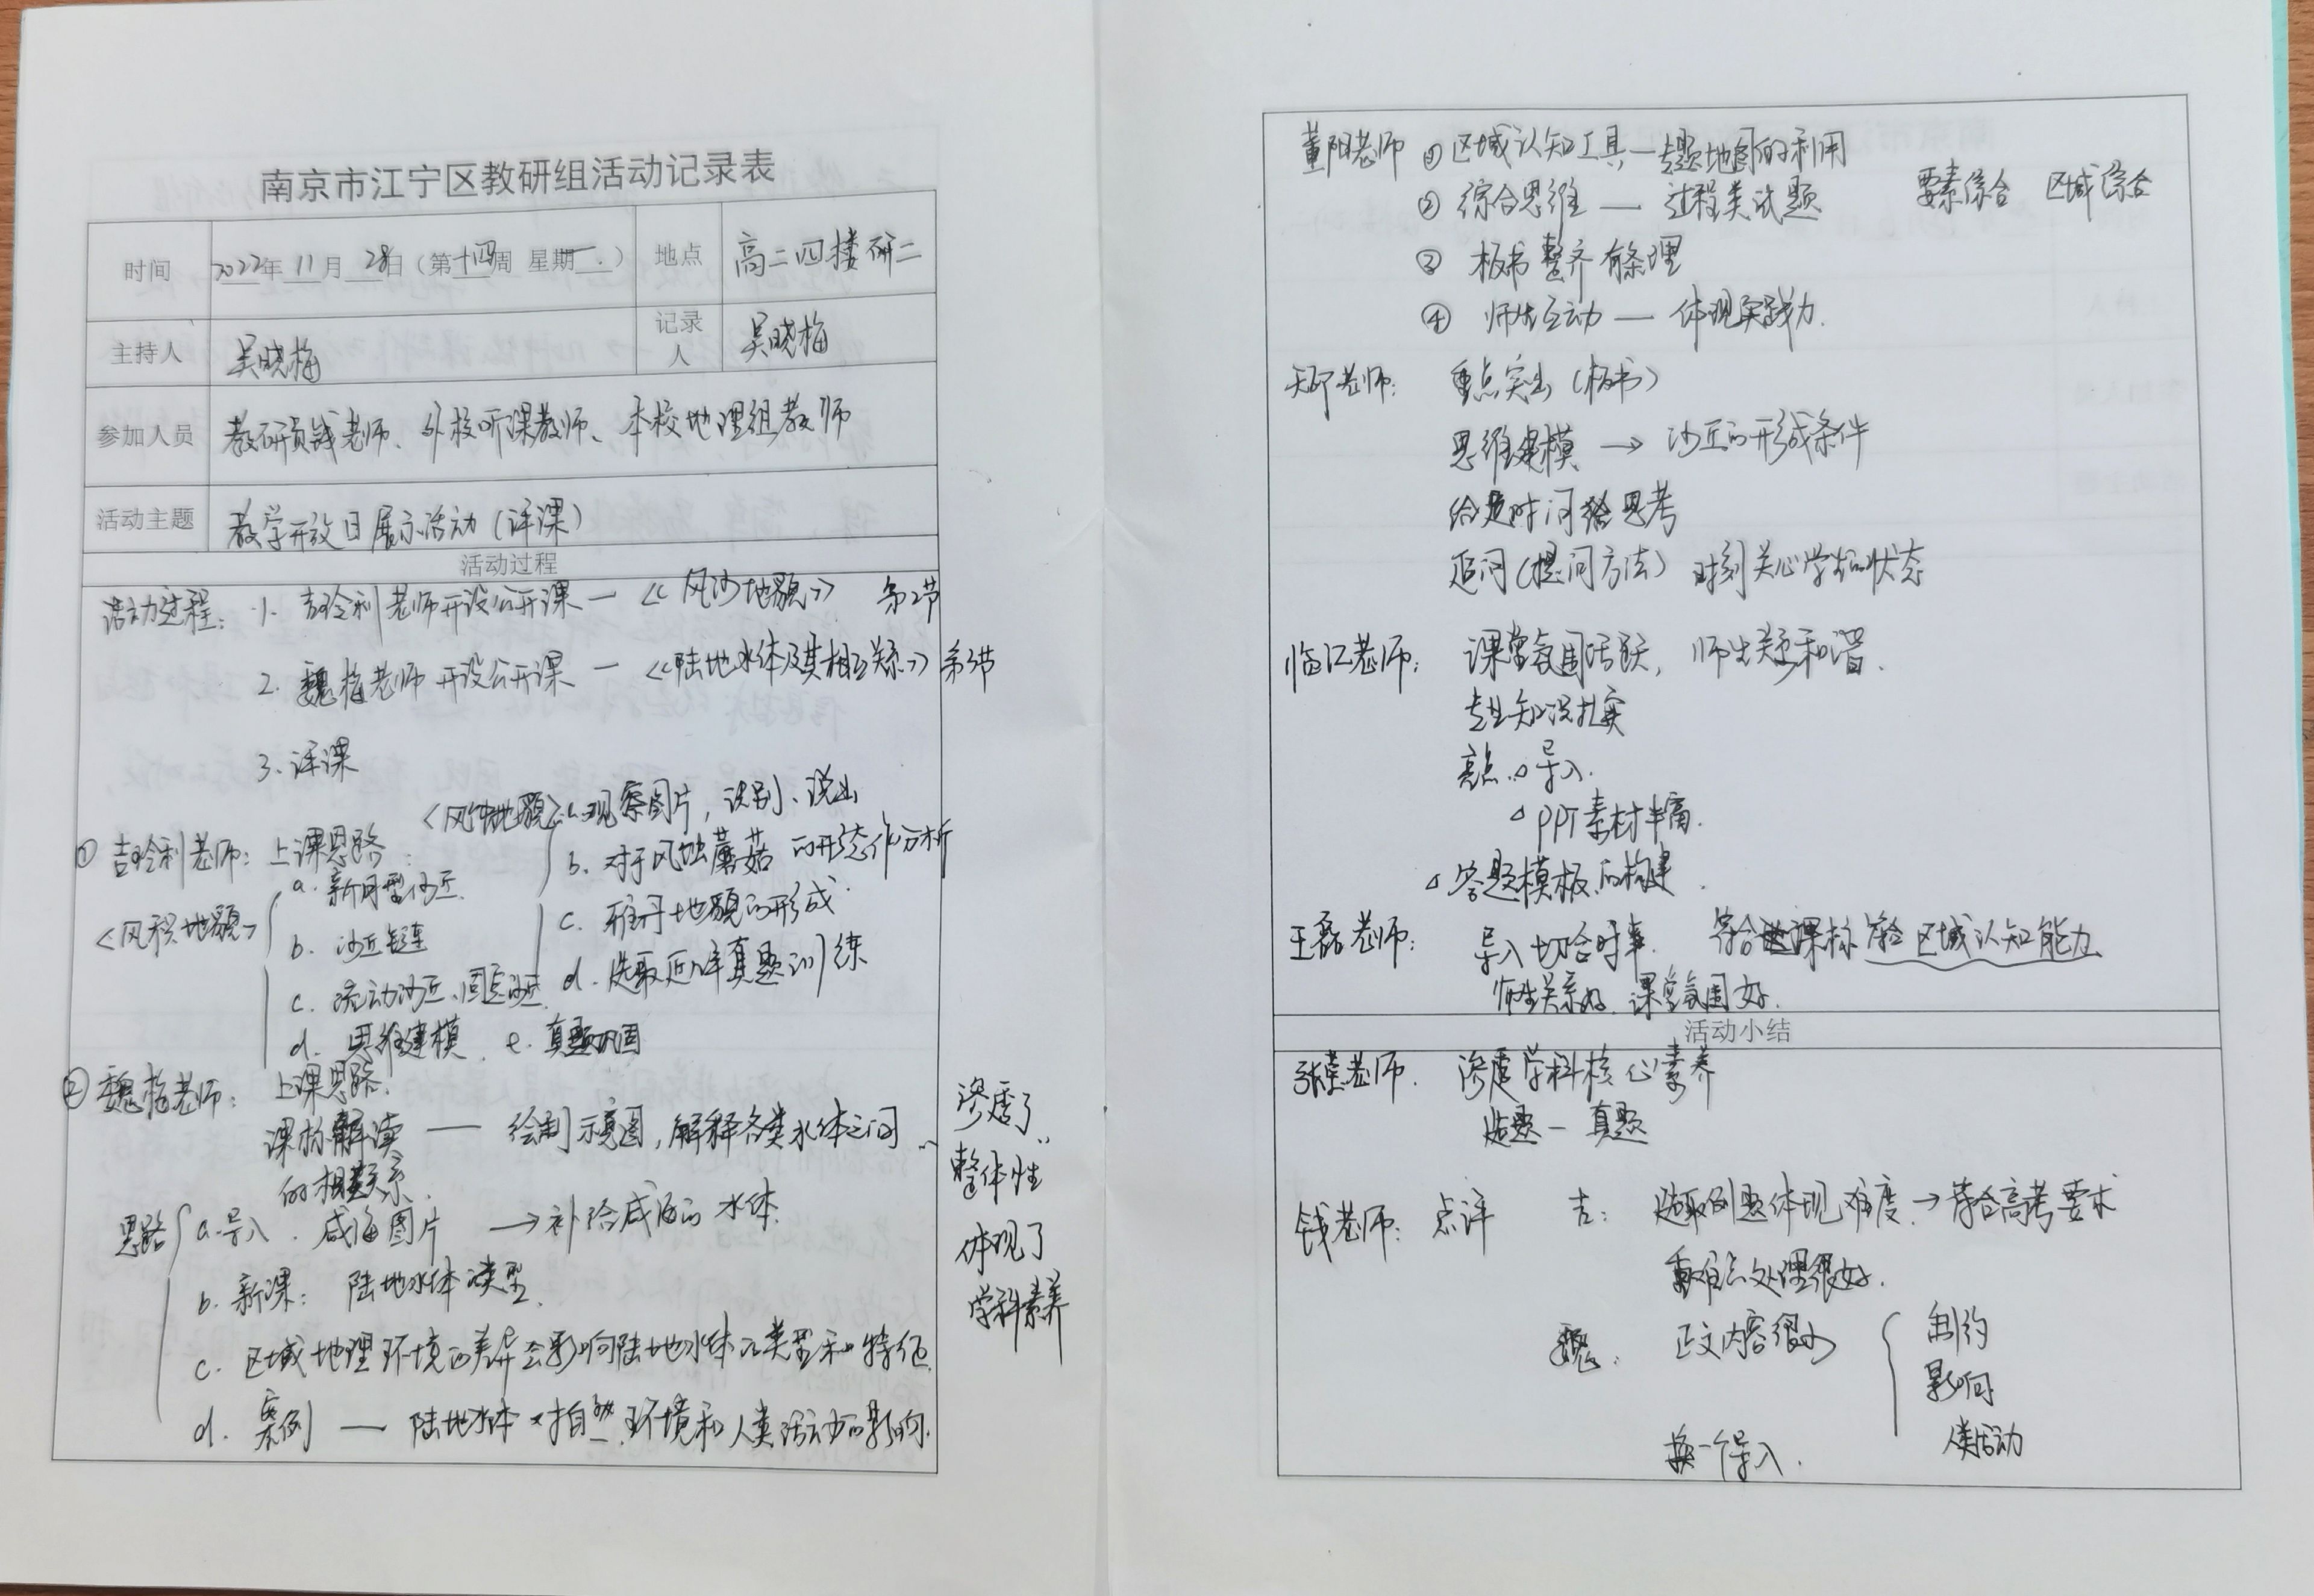 南京市江宁区教研组活动记录表
时间 2022年 11 月 28日（第十四周 星期一.） 地点 高二四楼研二
主持人 吴晓梅 记录人 吴晓梅
参加人员 教研员钱老师、外校听课教师、本校地理组教师
活动主题 教学开放日展示活动（评课）
活动过程
活动过程： 1. 吉玲利老师开设公开课 — 《风沙地貌》 第2节
2. 魏梅老师开设公开课 — 《陆地水体及其相互关系》 第3节
3. 评课
<风蚀地貌> a.观察图片，识别、说出
b. 对于风蚀蘑菇的形态作分析
c. 雅丹地貌的形成.
d. 选取近几年真题训练
① 吉玲利老师： 上课思路：
<风积地貌> a. 新月型沙丘.
b. 沙丘链
c. 流动沙丘、固定沙丘.
d. 思维建模. e. 真题巩固
② 魏梅老师： 上课思路.
课标解读 —— 绘制示意图，解释各类水体之间
的相互关系.
思路 a.导入. 咸海图片 → 补给咸海的水体.
b. 新课： 陆地水体类型.
c. 区域地理环境的差异会影响陆地水体的类型和特征.
d. 案例 —— 陆地水体对自然环境和人类活动的影响.
渗透了
整体性
体现了
学科素养
董阳老师 ① 区域认知工具—专题地图的利用
② 综合思维 — 过程类试题 要素综合 区域综合
③ 板书整齐有条理
④ 师生互动 — 体现实践力.
老师： 重点突出（板书）
思维建模 → 沙丘的形成条件
给足时间 思考
追问（提问方法） 时刻关心学生的状态
临江老师： 课堂氛围活跃，师生关系和谐.
专业知识扎实
亮点：△导入.
△ PPT素材丰富.
△ 答题模板的构建.
王磊老师： 导入切合时事. 符合课标 区域认知能力
师生关系好. 课堂氛围好.
活动小结
张荣老师. 渗透学科核心素养
选题 — 真题
钱老师： 点评 吉： 选取例题体现难度. → 符合高考要求
重难点处理很好.
魏： 正文内容很少 制约
影响
人类活动
换一个导入.